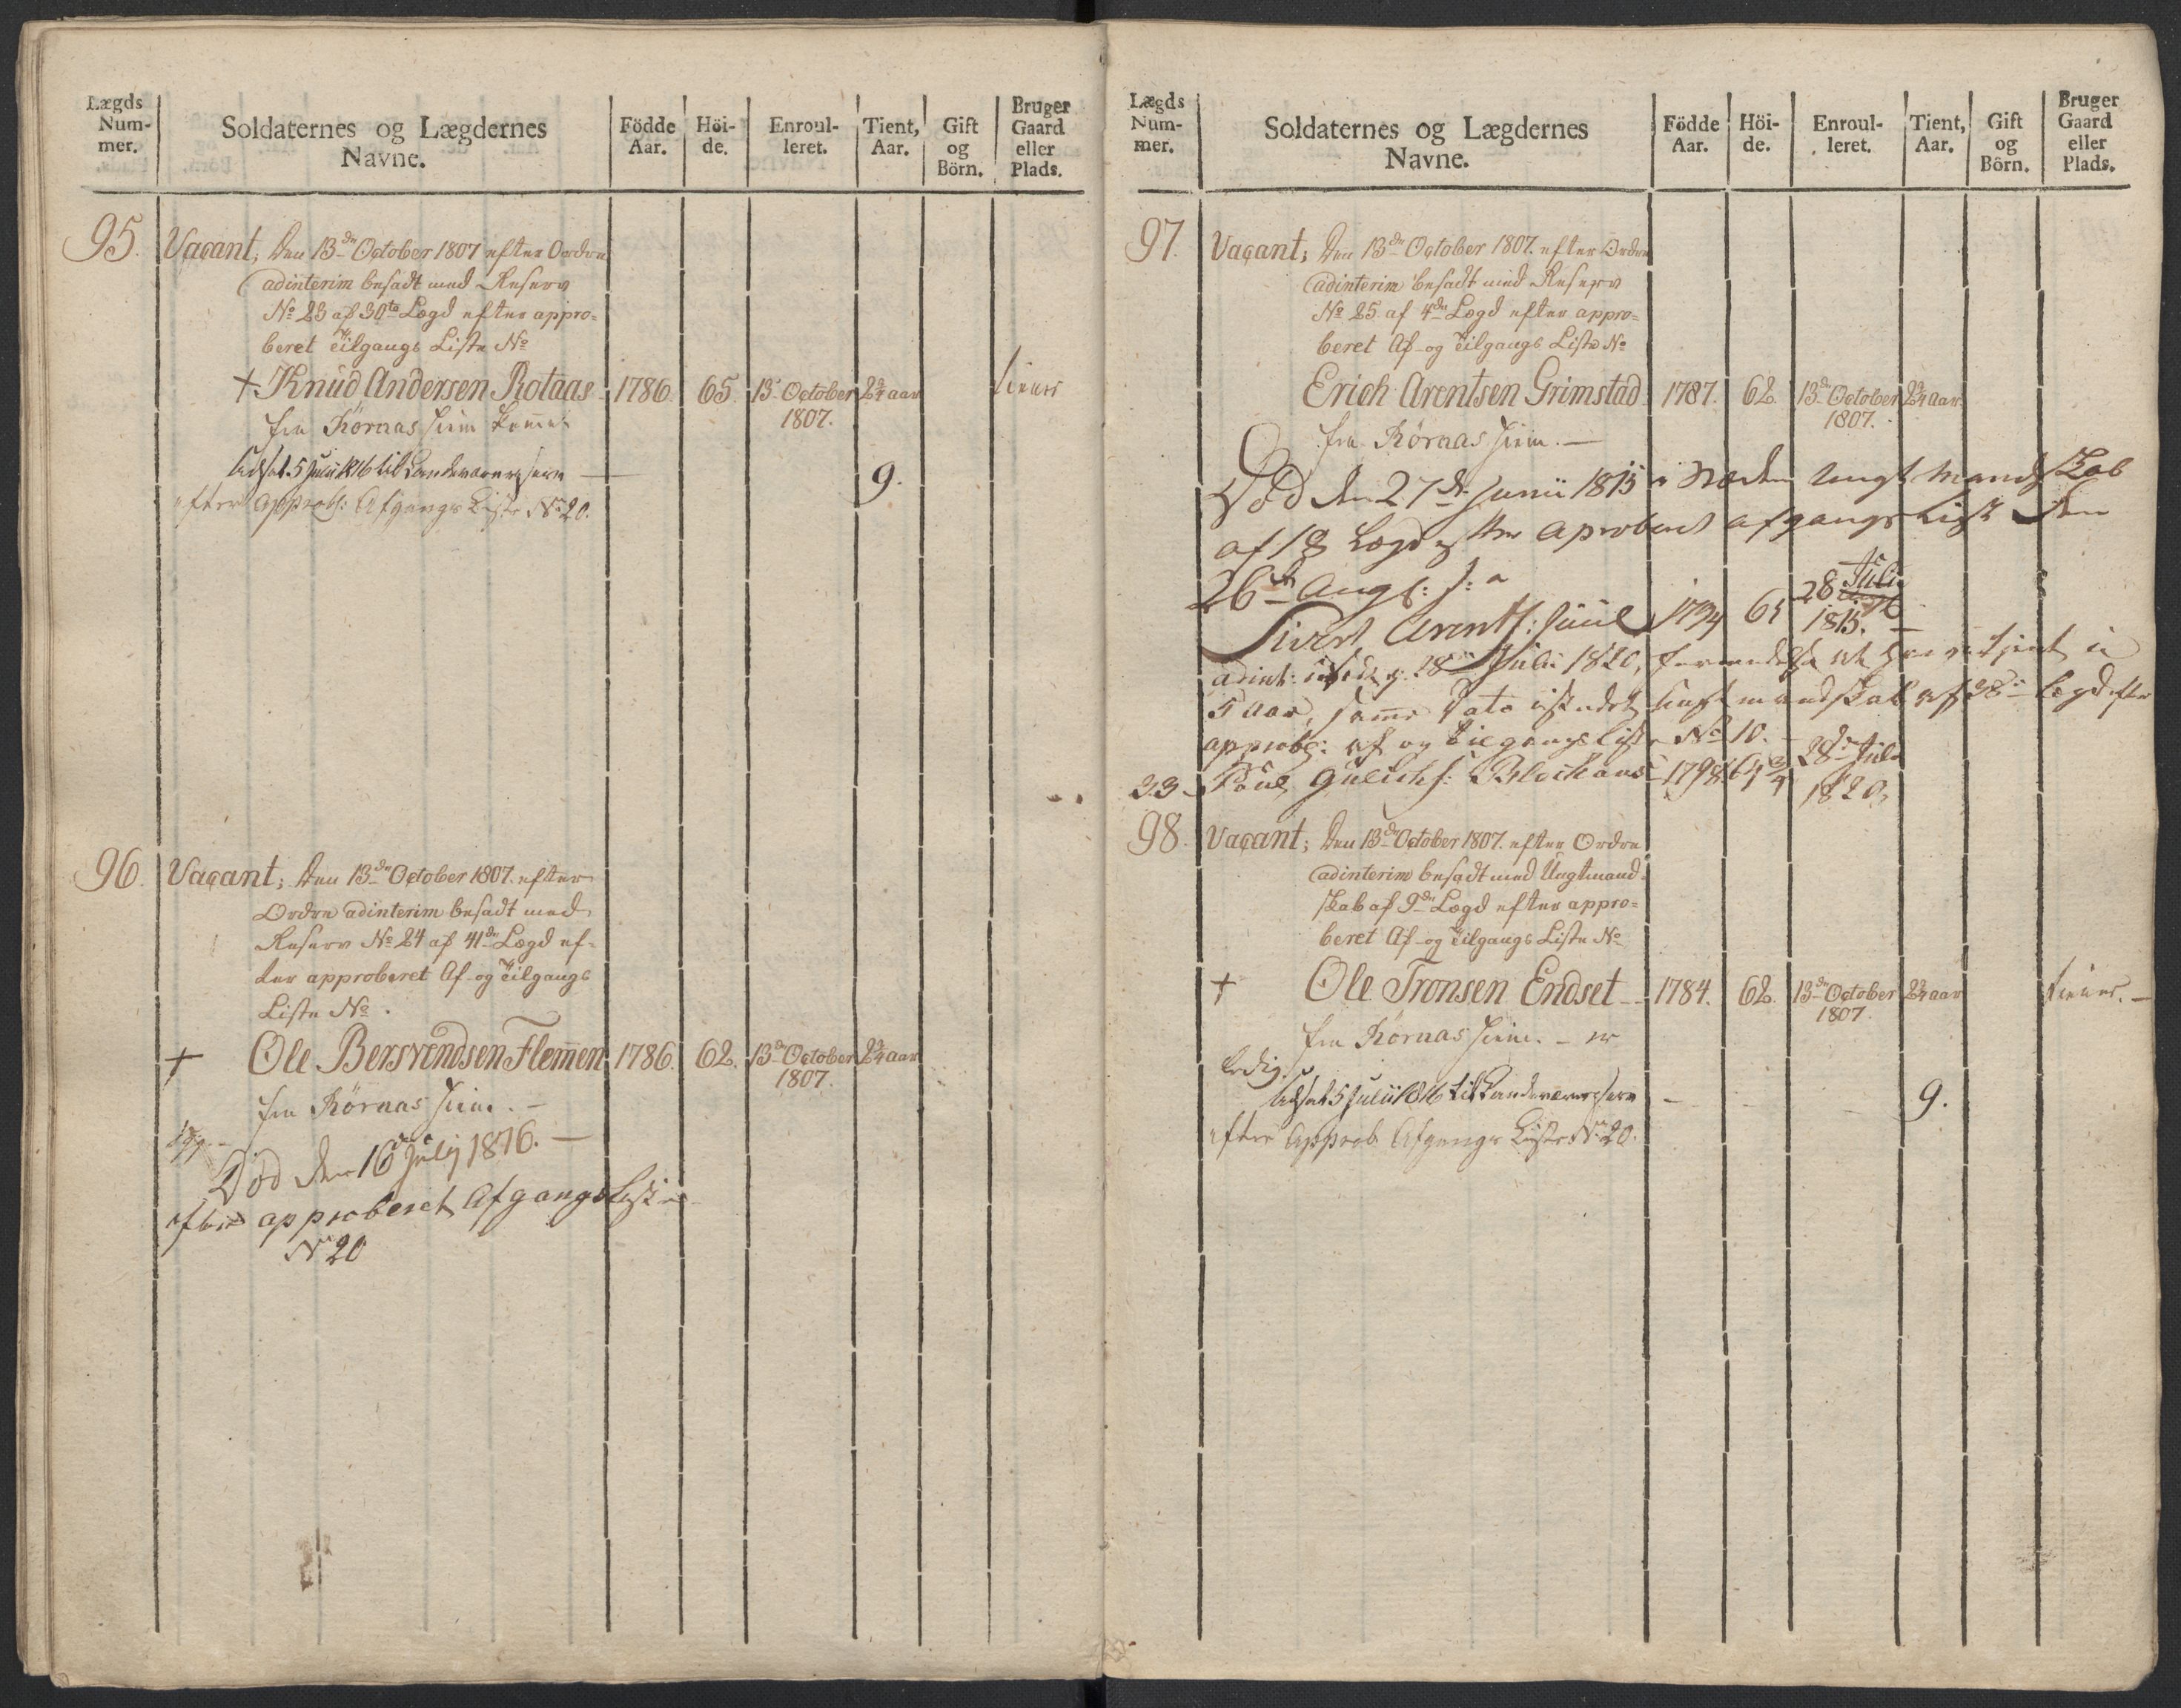 Lægds Num-mer.
Soldaternes og Lægdernes Navne.
Födde Aar.
Höi-de.
Enroul-leret.
Tient, Aar.
Gift og Börn.
Bruger Gaard eller Plads.
95. Vacant; den 13de October 1807 efter Ordre
adinterim besadt med Reserv
No 23 af 30te Lægd efter appro=
beret Tilgangs Liste No
+ Knud Andersen Rotaas 1786. 65. 13de October 1807. 2¾ aar tiener
fra Röraas
Udsat 5 Julii 1816 til Landeværnet — 9.
efter Approb: Afgangs Liste No 20.
96. Vacant; den 13de October 1807. efter
Ordre adinterim besadt med
Reserv No 24 af 41de Lægd ef-
ter approberet Af- og Tilgangs
Liste No.
+ Ole Bersvendsen Flemmen 1786. 62. 13de October 1807. 2¾ aar
fra Röraas
Död den 16de July 1816. —
efter approberet Afgangs Liste
No 20
Lægds Num-mer.
Soldaternes og Lægdernes Navne.
Födde Aar.
Höi-de.
Enroul-leret.
Tient, Aar.
Gift og Börn.
Bruger Gaard eller Plads.
97. Vacant; den 13de October 1807. efter Ordre
adinterim besadt med Reserv
No 25. af 4de Lægd efter appro=
beret Af- og Tilgangs Liste No
Erich Arentsen Grimstad 1787. 62. 13de October 1807. 2¾ aar.
fra Röraas
Död den 27de Junii 1815 Ungt Mandskab
af 18 Lægd efter aproberet afgangs Liste den
26de Aug: s: a
Sivert Arents: 1794 65 28 Julii 1815. —
adint: 28 Julii 1820,
5 aar, samme Dato ungt mandskab af 38 Lægd efter
approb: af og Tilgangs Liste No 10.
23. Poul 1798 64¾ 28de Julii 1820,
98. Vacant; den 13de October 1807. efter Ordre
adinterim besadt med Ungtmand=
skab af 9de Lægd efter appro=
beret Af- og Tilgangs Liste No
+ Ole Tronsen Endset 1784. 62. 13de October 1807. 2¾ aar tiener. —
fra Röraas — er
ledig.
Udsat 5 Julii 1816 til Landeværnet — 9.
efter Approb. Afgangs Liste No 20.